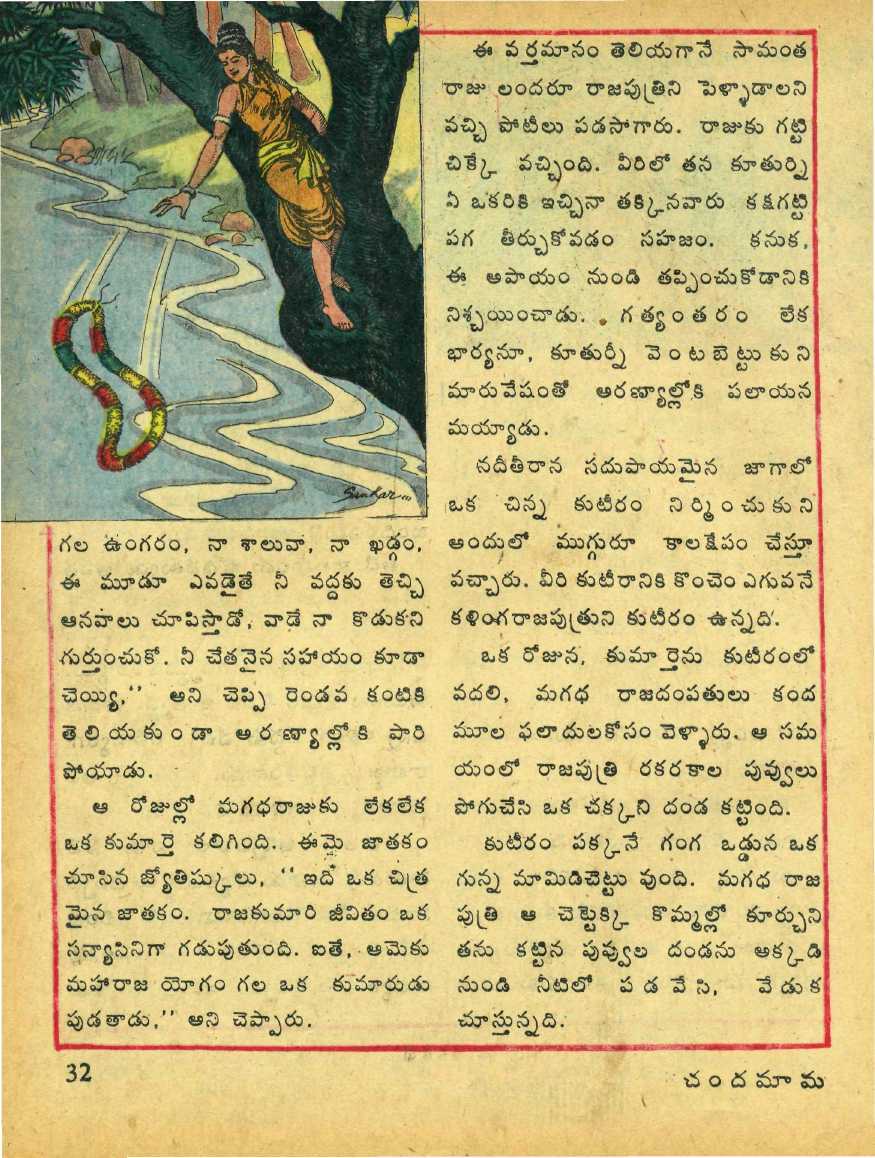 Sankar...
గల ఉంగరం, నా శాలువా, నా ఖడ్గం,
ఈ మూడూ ఎవడైతే నీ వద్దకు తెచ్చి
ఆనవాలు చూపిస్తాడో, వాడే నా కొడుకని
గుర్తుంచుకో. నీ చేతనైన సహాయం కూడా
చెయ్యి,'' అని చెప్పి రెండవ కంటికి
తెలియకుండా అరణ్యాల్లోకి పారి
పోయాడు.
ఆ రోజుల్లో మగధరాజుకు లేకలేక
ఒక కుమార్తె కలిగింది. ఈమె జాతకం
చూసిన జ్యోతిష్కులు, ''ఇది ఒక చిత్ర
మైన జాతకం. రాజకుమారి జీవితం ఒక
సన్యాసినిగా గడుపుతుంది. ఐతే, ఆమెకు
మహారాజ యోగం గల ఒక కుమారుడు
పుడతాడు,'' అని చెప్పారు.
ఈ వర్తమానం తెలియగానే సామంత
రాజు లందరూ రాజపుత్రిని పెళ్ళాడాలని
వచ్చి పోటీలు పడసాగారు. రాజుకు గట్టి
చిక్కే వచ్చింది. వీరిలో తన కూతుర్ని
ఏ ఒకరికి ఇచ్చినా తక్కినవారు కక్షగట్టి
పగ తీర్చుకోవడం సహజం. కనుక,
ఈ అపాయం నుండి తప్పించుకోడానికి
నిశ్చయించాడు. గత్యంతరం లేక
భార్యనూ, కూతుర్నీ వెంటబెట్టుకుని
మారువేషంతో అరణ్యాల్లోకి పలాయన
మయ్యాడు.
నదీతీరాన సదుపాయమైన జాగాలో
ఒక చిన్న కుటీరం నిర్మించుకుని
అందులో ముగ్గురూ కాలక్షేపం చేస్తూ
వచ్చారు. వీరి కుటీరానికి కొంచెం ఎగువనే
కళింగరాజపుత్రుని కుటీరం ఉన్నది.
ఒక రోజున, కుమార్తెను కుటీరంలో
వదలి, మగధ రాజదంపతులు కంద
మూల ఫలాదులకోసం వెళ్ళారు. ఆ సమ
యంలో రాజపుత్రి రకరకాల పువ్వులు
పోగుచేసి ఒక చక్కని దండ కట్టింది.
కుటీరం పక్కనే గంగ ఒడ్డున ఒక
గున్న మామిడిచెట్టు వుంది. మగధ రాజ
పుత్రి ఆ చెట్టెక్కి కొమ్మల్లో కూర్చుని
తను కట్టిన పువ్వుల దండను అక్కడి
నుండి నీటిలో పడవేసి, వేడుక
చూస్తున్నది.
32
చందమామ